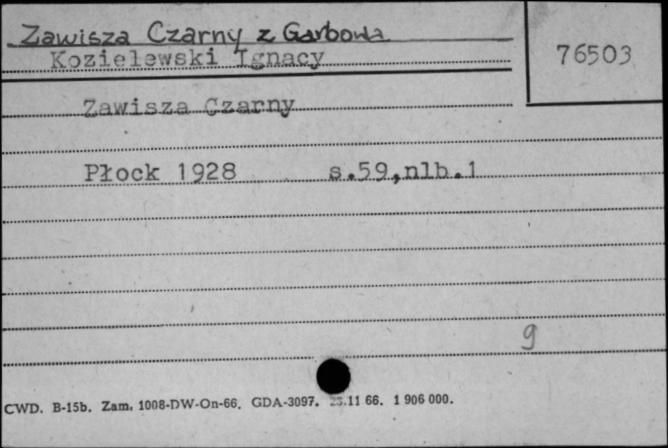 Zawisza Czarny z Garbowa
76503
Kozielewski Ignacy
Zawisza Czarny
Płock 1928 s.59,nlb.1
9
CWD. B-15b. Zam. 1008-DW-On-66. GDA-3097. 11 66. 1 906 000.